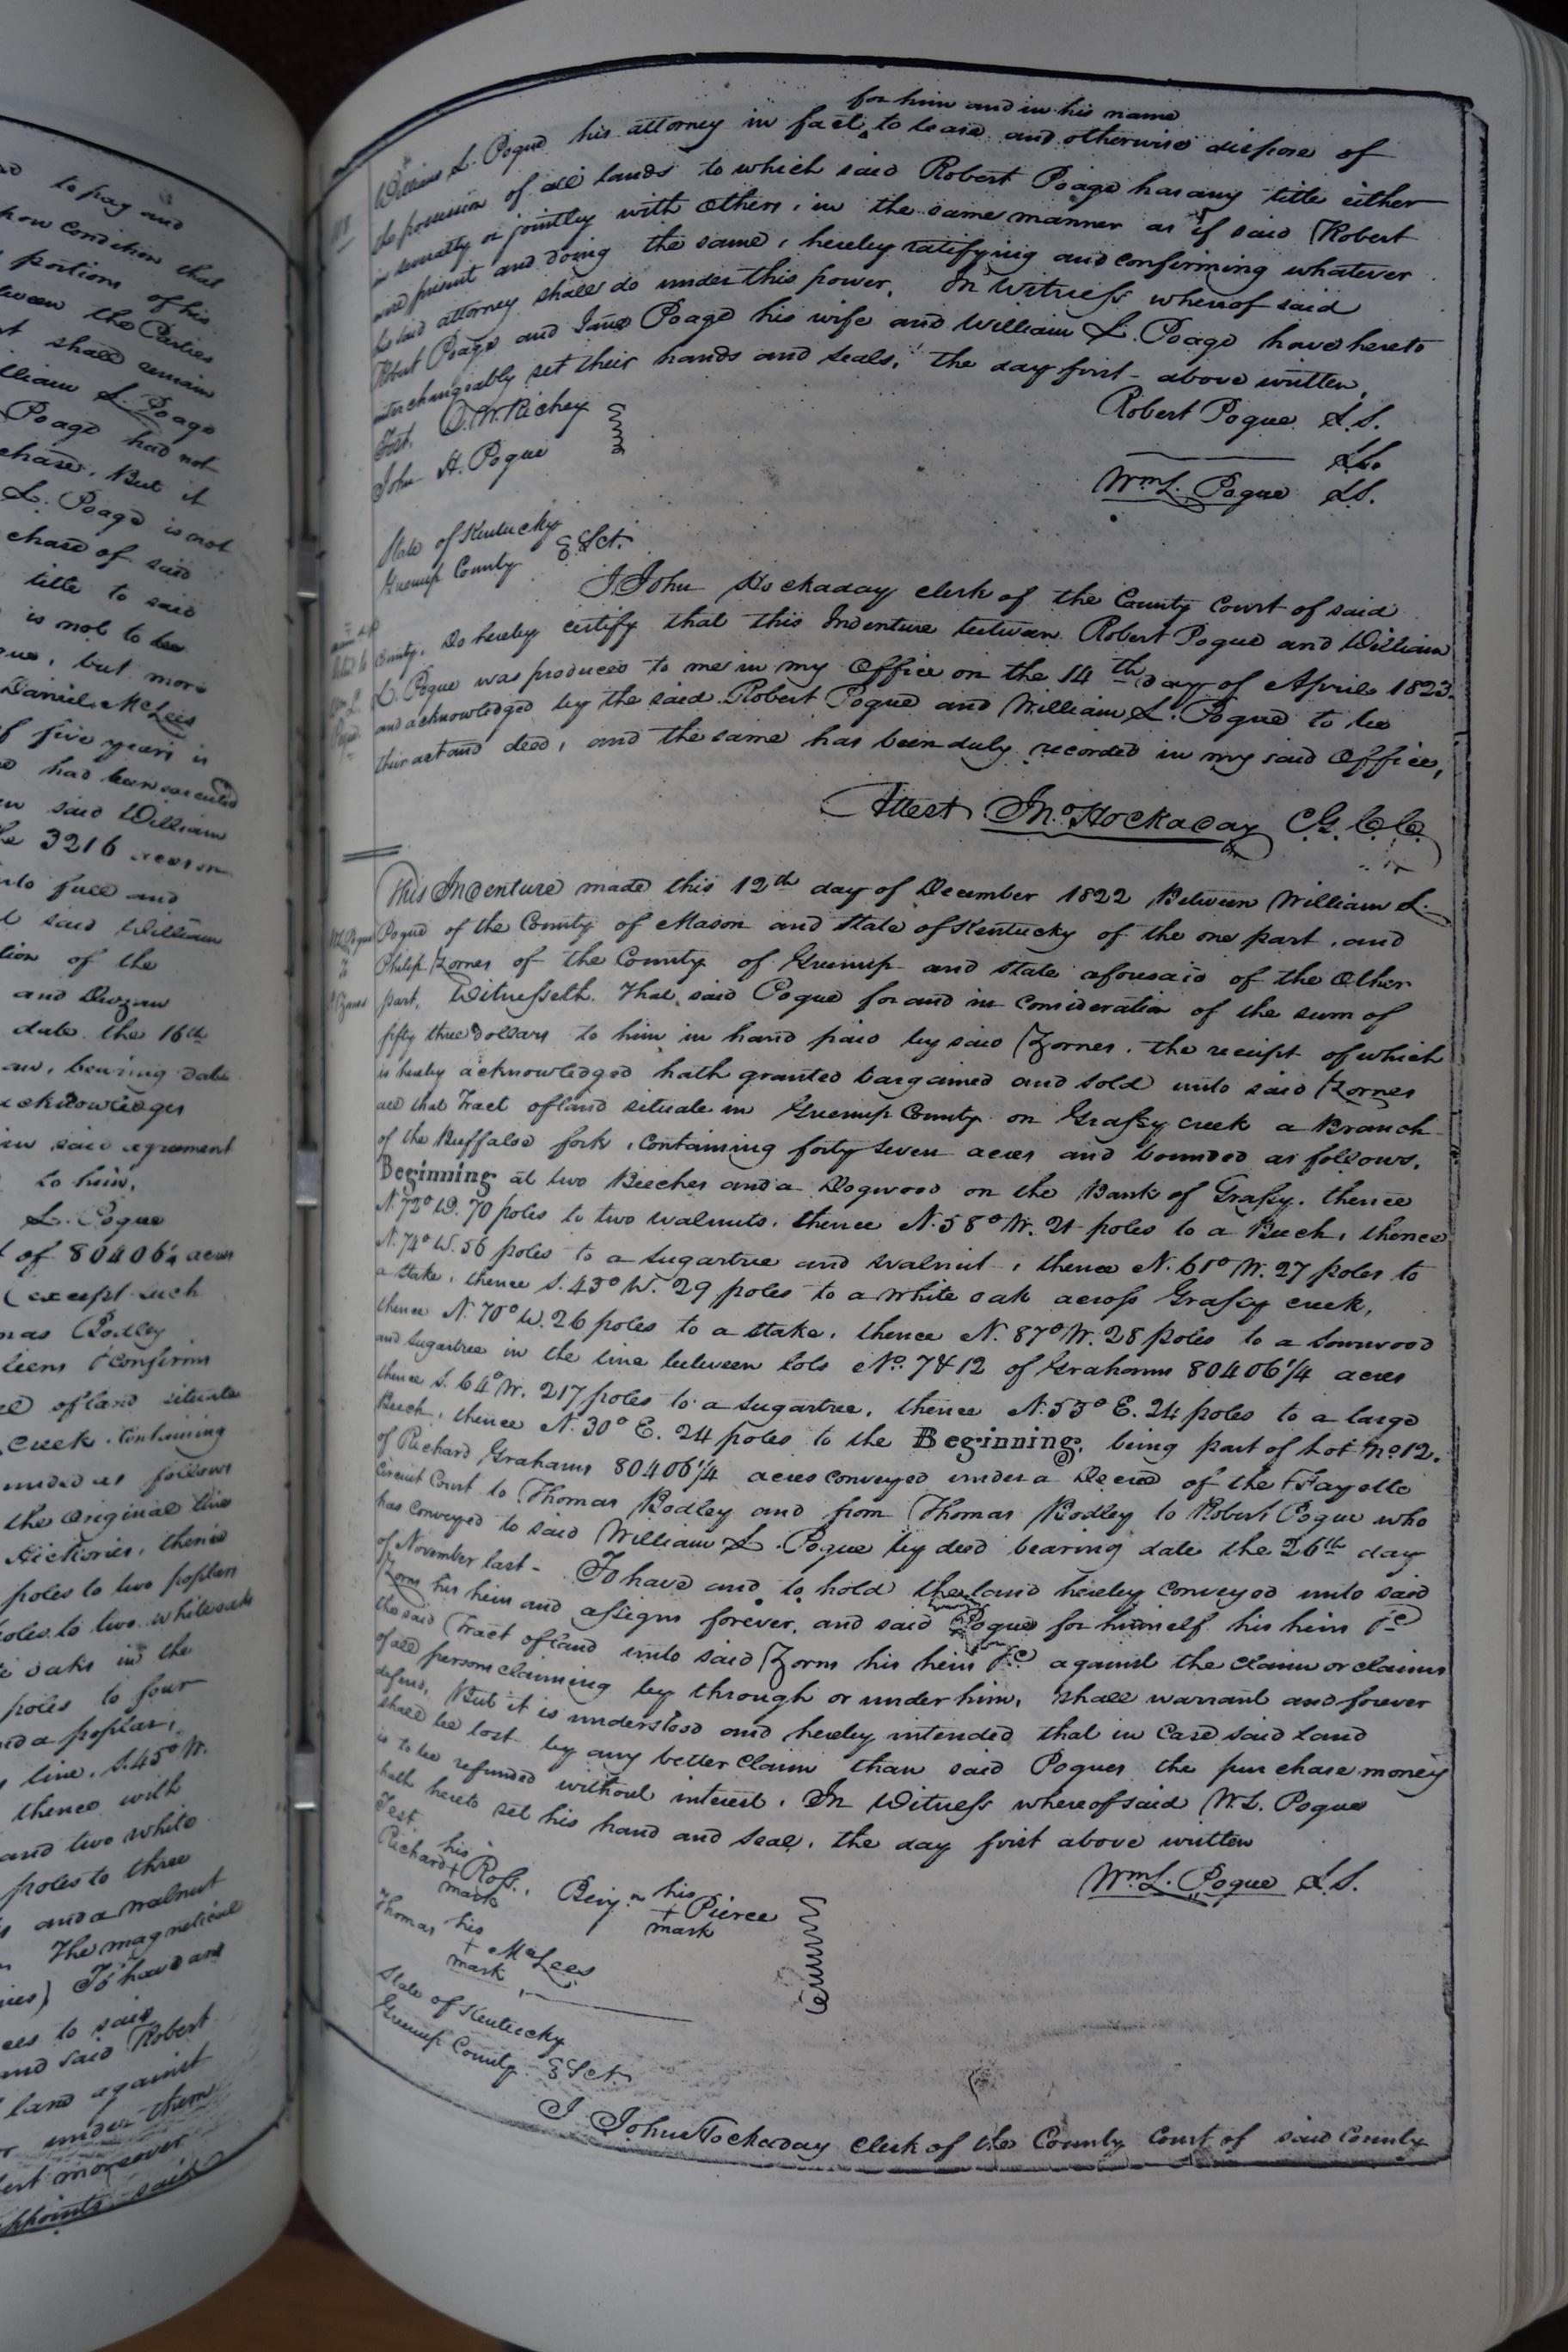 to pay and
condition that
portions of his
the Parties
shall remain
William L. Poage
Poage had not
chase, But it
L. Poage is not
chase of said
title to said
is not to be
but more
Daniel McLees
of five years is
had been executed
said William
3216 acres
full and
said William
tion of the
and
date the 16th
bearing date
acknowledges
in said agreement
to him,
L. Pogue
of 80406¼ acres
(except such
Bodley
& confirm
of land situate
Creek. containing
bounded as follows
the original line
Hickories, thence
poles to two poplars
poles to two whiteoaks
oaks in the
poles to four
and a poplar,
line, S. 45° W.
thence with
and two white
poles to three
and a walnut
The magnetical
To have and
to said
and said Robert
land against
under them
moreover
appoints said
for him and in his name
William L. Pogue his attorney in fact ‸ to lease and otherwise dispose of
the possession of all lands to which said Robert Poage has any title either
in severalty or jointly with others, in the same manner as if said Robert
were present and doing the same, hereby ratifying and confirming whatever
his said attorney shall do under this power. In Witness whereof said
Robert Poage and Jane Poage his wife and William L. Poage have hereto
interchangeably set their hands and seals, the day first above written,
Test. O.W. Richey
John H. Pogue
Robert Pogue L.S.
L.S.
Wm. L. Pogue L.S.
State of Kentucky
Greenup County Sct.
I John Hockaday clerk of the County Court of said
County, do hereby certify that this Indenture between Robert Pogue and William
L. Pogue was produced to me in my Office on the 14th day of April 1823.
and acknowledged by the said Robert Pogue and William L. Pogue to be
their act and deed, and the same has been duly recorded in my said Office,
Attest Jno Hockaday C.G.C.C.
This Indenture made this 12th day of December 1822 Between William L.
W.L. Pogue
To
P. Zornes
Pogue of the County of Mason and State of Kentucky of the one part, and
Philip Zornes of the County of Greenup and State aforesaid of the other
part, Witnesseth. That said Pogue for and in consideration of the sum of
fifty three dollars to him in hand paid by said Zornes, the receipt of which
is hereby acknowledged hath granted bargained and sold unto said Zornes
all that Tract of land situate in Greenup County on Grassy creek a Branch
of the Buffaloe fork, containing forty seven acres and bounded as follows,
Beginning at two Beeches and a Dogwood on the Bank of Grassy, thence
N. 72° W. 70 poles to two walnuts, thence N. 58° W. 21 poles to a Beech, thence
N. 74° W. 56 poles to a sugartree and walnut, thence N. 61° W. 27 poles to
a stake, thence S. 43° W. 29 poles to a white oak across Grassy creek,
thence N. 70° W. 26 poles to a stake, thence N. 87° W. 28 poles to a
and sugartree in the line between lots No. 7 & 12 of Grahams 80406¼ acres
thence S. 64° W. 217 poles to a sugartree, thence N. 53° E. 24 poles to a large
Beech, thence N. 30° E. 24 poles to the Beginning, being part of Lot No 12.
of Richard Grahams 80406¼ acres conveyed under a Decree of the Fayette
Circuit Court to Thomas Bodley and from Thomas Bodley to Robert Pogue who
has conveyed to said William L. Pogue by deed bearing date the 26th day
of November last - To have and to hold the land hereby conveyed unto said
Zorns his heirs and assigns forever, and said Pogue for himself his heirs &c
the said Tract of land unto said Zorns his heirs &c against the claim or claims
of all persons claiming by through or under him, shall warrant and forever
defend, But it is understood and hereby intended that in Case said land
shall be lost by any better Claim than said Pogues the purchase money
is to be refunded without interest. In Witness whereof said W.L. Pogue
hath hereto set his hand and Seal, the day first above written
Test.
Wm. L. Pogue L.S.
his
Richard + Ross,
mark
his
Benj.n + Pierce
mark
his
Thomas + McLees
mark
State of Kentucky
Greenup County Sct.
I John Hockaday Clerk of the County Court of said County